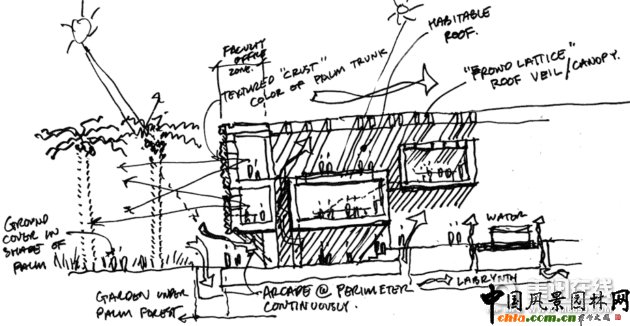 FACULTY
OFFICE
ZONE.
HABITABLE
ROOF.
TEXTURED "CRUST"
COLOR OF PALM TRUNK
"FROND LATTICE"
ROOF VEIL/CANOPY.
GROUND
COVER IN
SHADE OF
PALM
WATER
GARDEN UNDER
PALM FOREST
ARCADE @ PERIMETER
CONTINUOUSLY.
LABRYNTH
中国风景园林网
chla.com.cn